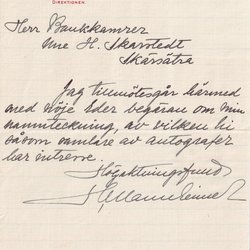 DIREKTIONEN
Herr Bankkamrer
Une H. Skarstedt
Skärsätra
Jag tillmötesgår härmed
med nöje Eder begäran om min
namnteckning, av vilken Ni
såsom samlare av autografer
har intresse.
Högaktningsfullt